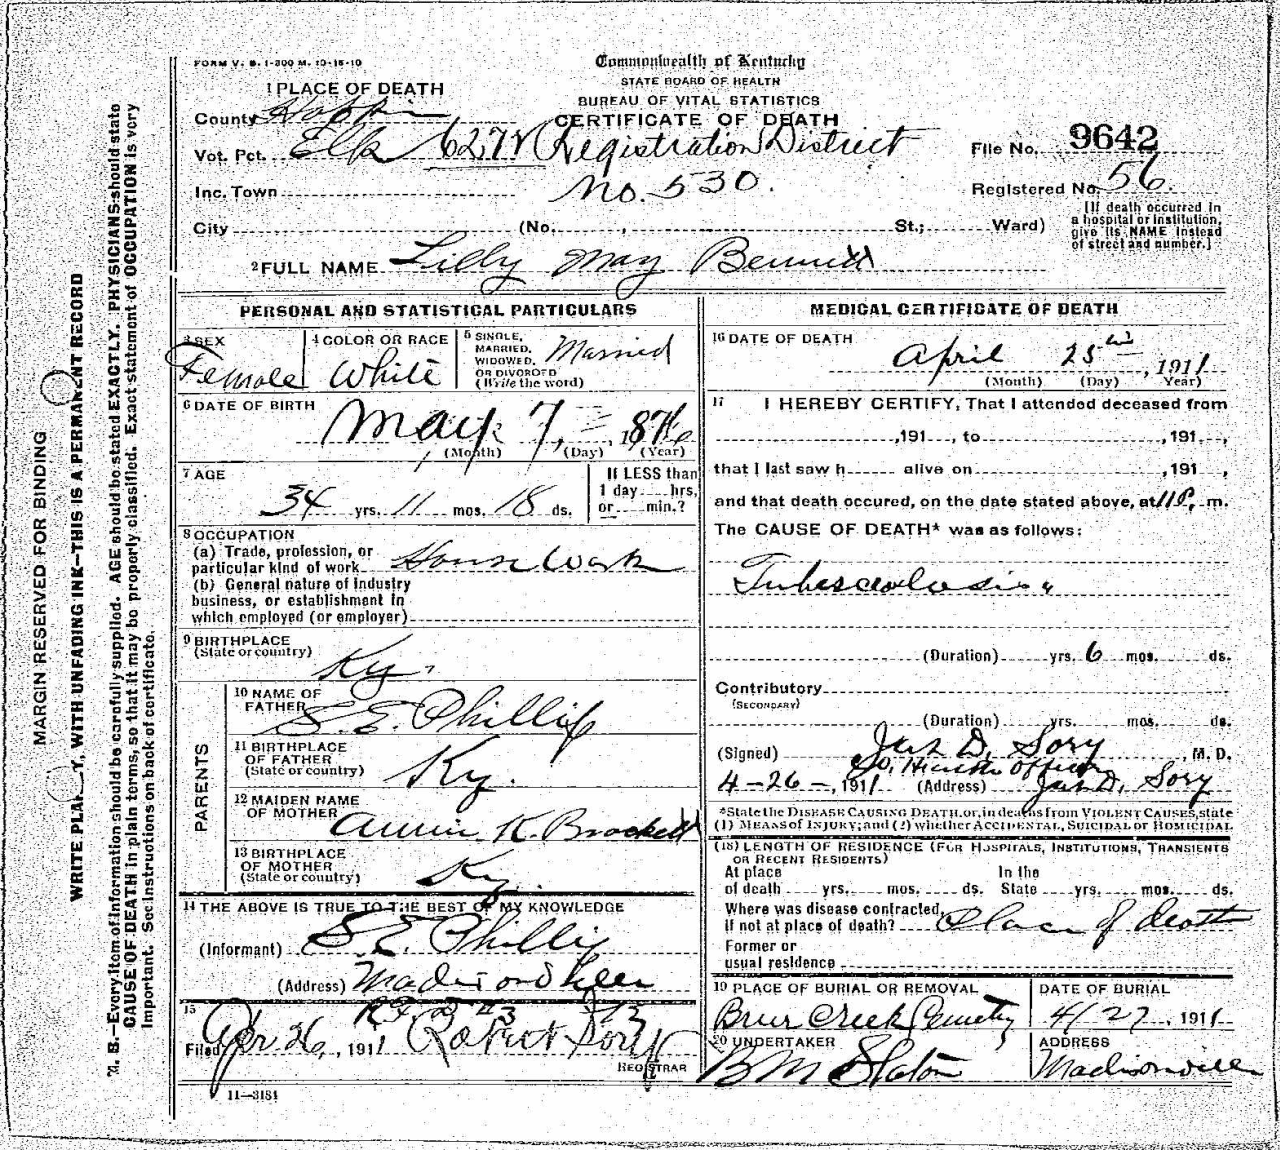 FORM V. S. 1-300 M. 10-15-10
Commonwealth of Kentucky
STATE BOARD OF HEALTH
BUREAU OF VITAL STATISTICS
CERTIFICATE OF DEATH
1 PLACE OF DEATH
County
Vot. Pct. Elk 6272 Registration District
No. 530.
File No. 9642
Inc. Town
Registered No. 56
City (No. , St.; Ward)
[If death occurred in
a hospital or institution,
give its NAME instead
of street and number.]
2 FULL NAME Lilly May Bennett
PERSONAL AND STATISTICAL PARTICULARS
3 SEX Female
4 COLOR OR RACE White
5 SINGLE,
MARRIED,
WIDOWED,
OR DIVORCED
(Write the word) Married
6 DATE OF BIRTH
May 7, 1876
(Month) (Day) (Year)
7 AGE
34 yrs. 11 mos. 18 ds.
If LESS than
1 day hrs.
or min.?
8 OCCUPATION
(a) Trade, profession, or
particular kind of work House Work
(b) General nature of industry
business, or establishment in
which employed (or employer)
9 BIRTHPLACE
(State or country) Ky.
PARENTS
10 NAME OF
FATHER S. E. Phillip
11 BIRTHPLACE
OF FATHER
(State or country) Ky.
12 MAIDEN NAME
OF MOTHER Annie K. Brackett
13 BIRTHPLACE
OF MOTHER
(State or country) Ky.
14 THE ABOVE IS TRUE TO THE BEST OF MY KNOWLEDGE
(Informant) S. E. Phillip
(Address) Madisonville
15
Filed Apr 26, 1911 Robert Sory
REGISTRAR
11—3184
MEDICAL CERTIFICATE OF DEATH
16 DATE OF DEATH
April 25th, 1911
(Month) (Day) Year)
17 I HEREBY CERTIFY, That I attended deceased from
,191 , to ,191 ,
that I last saw h alive on ,191 ,
and that death occured, on the date stated above, at 11 P. m.
The CAUSE OF DEATH* was as follows:
Tuberculosis
(Duration) yrs. 6 mos. ds.
Contributory
(SECONDARY)
(Duration) yrs. mos. ds.
(Signed) Jas D. Sory , M. D.
Co. Health Officer
4-26-, 1911 (Address) Jas D. Sory
*State the DISEASE CAUSING DEATH, or, in deaths from VIOLENT CAUSES, state
(1) MEANS of INJURY; and (2) whether ACCIDENTAL, SUICIDAL or HOMICIDAL
(18) LENGTH OF RESIDENCE (FOR HOSPITALS, INSTITUTIONS, TRANSIENTS
OR RECENT RESIDENTS)
At place In the
of death yrs. mos. ds. State yrs. mos. ds.
Where was disease contracted,
if not at place of death? Place of death
Former or
usual residence
19 PLACE OF BURIAL OR REMOVAL
Brier Creek Cemetry
DATE OF BURIAL
4/27, 1911
20 UNDERTAKER
B M Slaton
ADDRESS
Madisonville
MARGIN RESERVED FOR BINDING
WRITE PLAINLY, WITH UNFADING INK—THIS IS A PERMANENT RECORD
N. B.—Every item of information should be carefully supplied. AGE should be stated EXACTLY. PHYSICIANS should state
CAUSE OF DEATH in plain terms, so that it may be properly classified. Exact statement of OCCUPATION is very
important. See instructions on back of certificate.